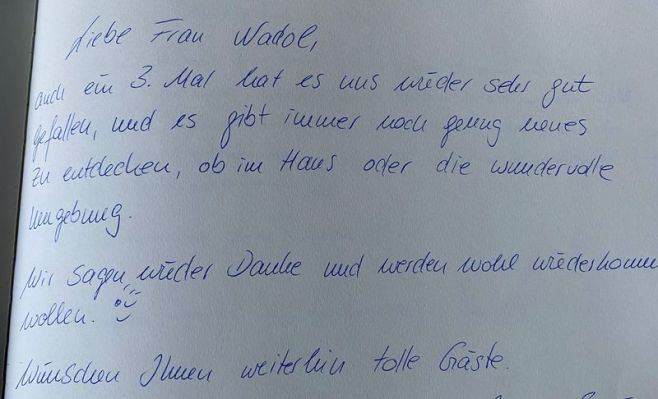 Liebe Frau Wadol,
auch ein 3. Mal hat es uns wieder sehr gut
gefallen, und es gibt immer noch genug neues
zu entdecken, ob im Haus oder die wundervolle
Umgebung.
Wir sagen wieder Danke und werden wohl wiederkomm
wollen.
Wünschen Ihnen weiterhin tolle Gäste.